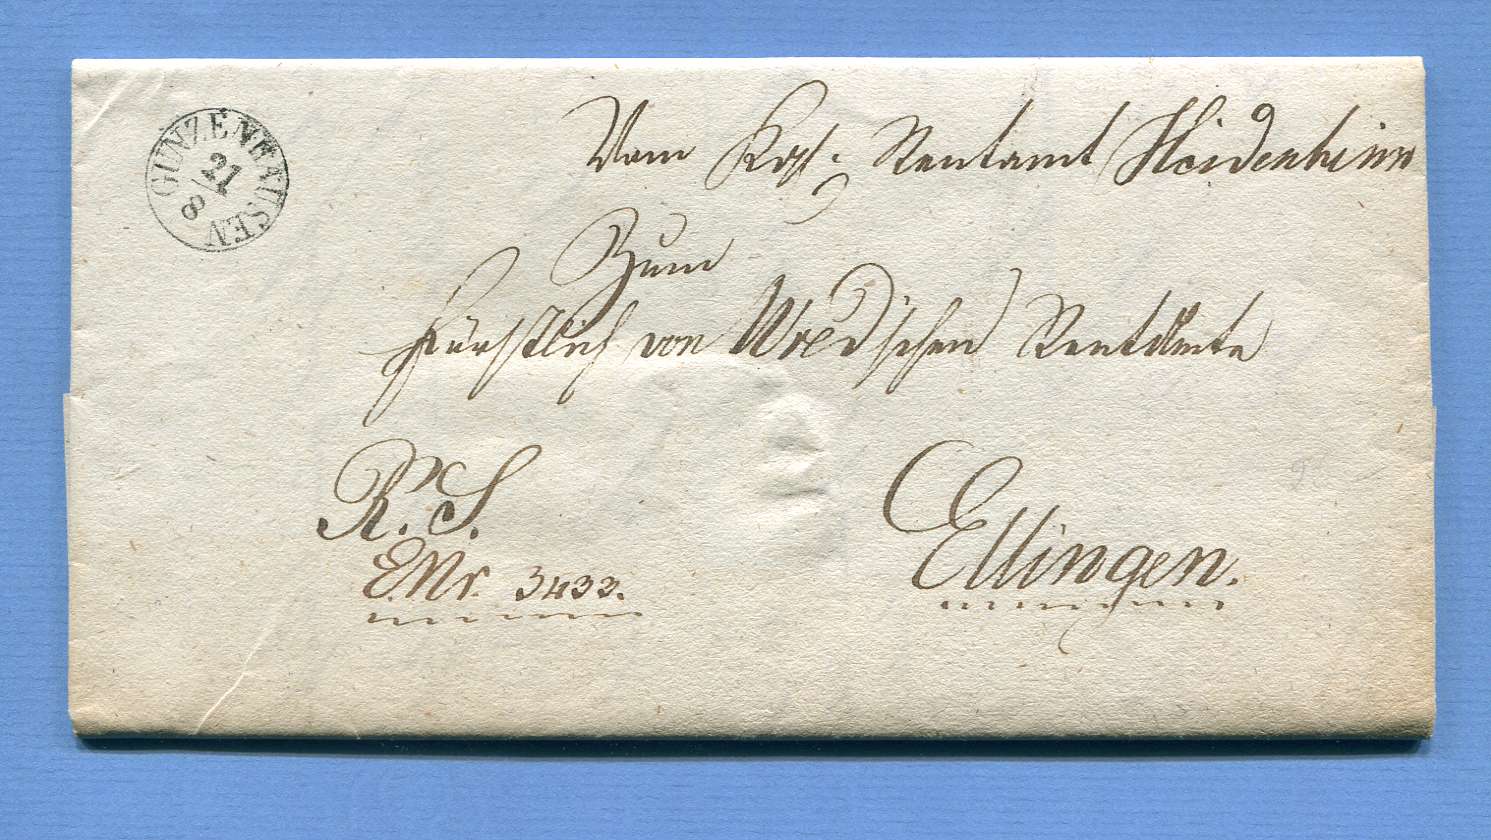 GUNZENHAUSEN
21
8
Vom Kgl: Rentamt Heidenheim
Zum
Fürstlich von Wred'schen Rentamte
R. S.
E. Nr. 3433.
Ellingen.